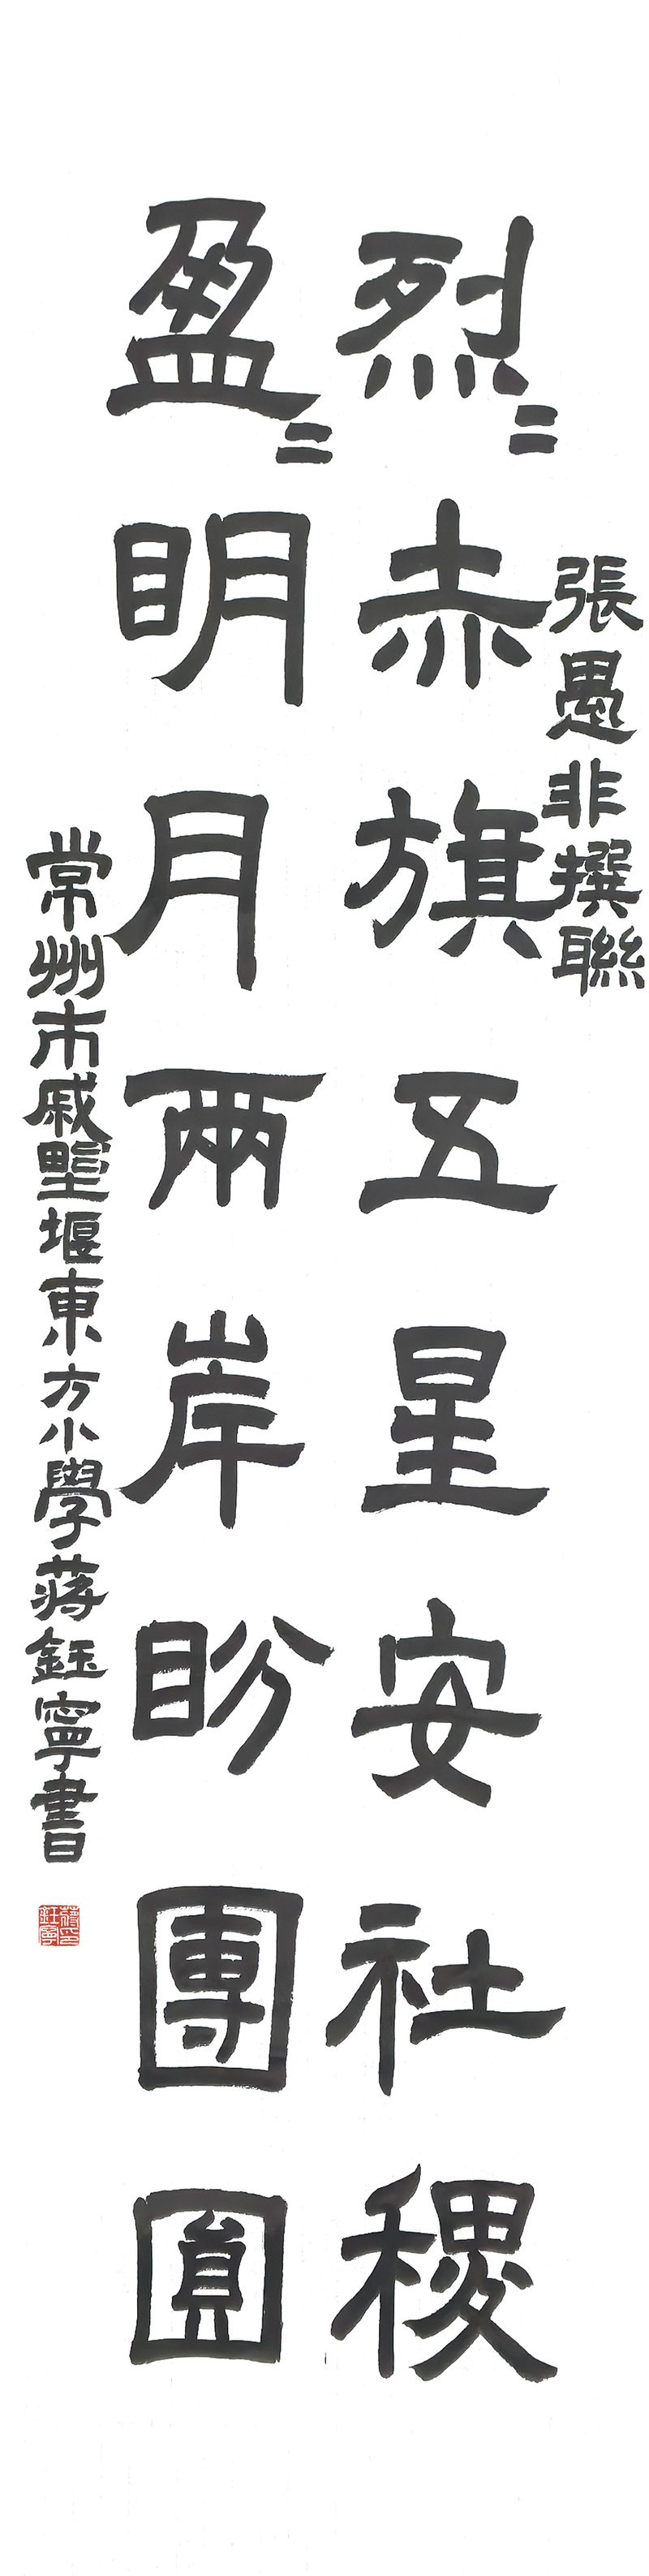 張愚非撰聯
烈〻赤旗五星安社稷
盈〻明月兩岸盼團圓
常州市戚墅堰東方小學蔣鈺寧書
蔣鈺寧印